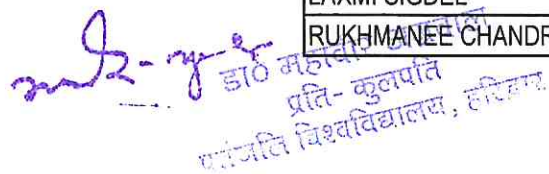 LAXMI SIGDEL
RUKHMANEE CHANDR
डा० महावीर अग्रवाल
प्रति-कुलपति
पतंजलि विश्वविद्यालय, हरिद्वार